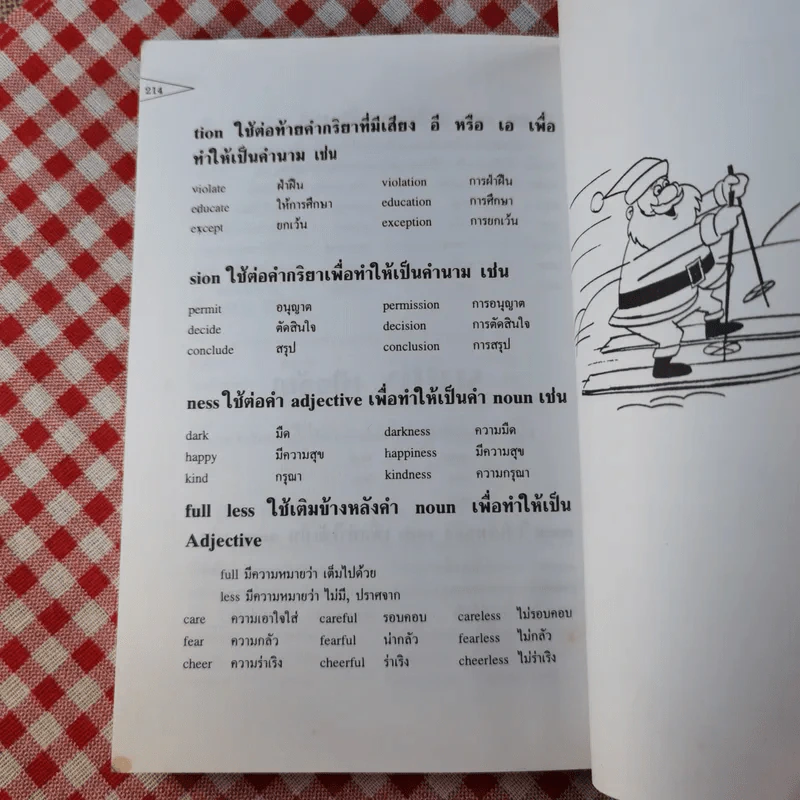 214
tion ใช้ต่อท้ายคำกริยาที่มีเสียง อี หรือ เอ เพื่อ
ทำให้เป็นคำนาม เช่น
violate ฝ่าฝืน violation การฝ่าฝืน
educate ให้การศึกษา education การศึกษา
except ยกเว้น exception การยกเว้น
sion ใช้ต่อคำกริยาเพื่อทำให้เป็นคำนาม เช่น
permit อนุญาต permission การอนุญาต
decide ตัดสินใจ decision การตัดสินใจ
conclude สรุป conclusion การสรุป
ness ใช้ต่อคำ adjective เพื่อทำให้เป็นคำ noun เช่น
dark มืด darkness ความมืด
happy มีความสุข happiness มีความสุข
kind กรุณา kindness ความกรุณา
full less ใช้เติมข้างหลังคำ noun เพื่อทำให้เป็น
Adjective
full มีความหมายว่า เต็มไปด้วย
less มีความหมายว่า ไม่มี, ปราศจาก
care ความเอาใจใส่ careful รอบคอบ careless ไม่รอบคอบ
fear ความกลัว fearful น่ากลัว fearless ไม่กลัว
cheer ความร่าเริง cheerful ร่าเริง cheerless ไม่ร่าเริง